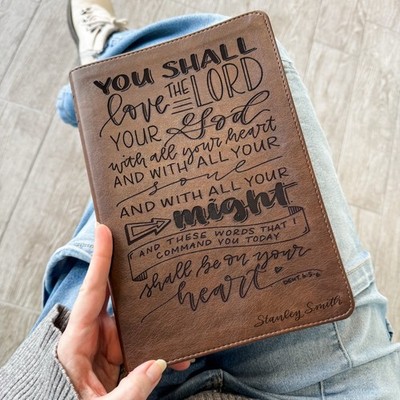 YOU SHALL
love THE LORD
YOUR God
with all your heart
AND WITH ALL YOUR
soul
AND WITH ALL YOUR
might
AND THESE WORDS THAT I
COMMAND YOU TODAY
shall be on your
heart
DEUT 6:5-6
Stanley Smith